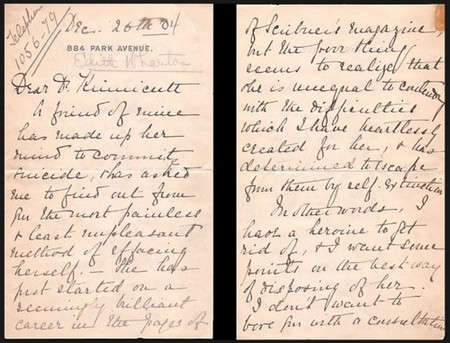 Telephone
1056-79
Dec. 26th 04
884 PARK AVENUE.
Edith Wharton
Dear Dr Kinnicutt
A friend of mine
has made up her
mind to commit
suicide, & has asked
me to find out from
you the most painless
& least unpleasant
method of effacing
herself. — She has
just started on a
seemingly brilliant
career in the pages of
of Scribner's Magazine,
but the poor thing
seems to realize that
she is unequal to contending
with the difficulties
which I have heartlessly
created for her, & has
determined to escape
from them by self-extinction
In other words, I
have a heroine to get
rid of, & I want some
points on the best way
of disposing of her.
I don't want to
bore you with a consultation